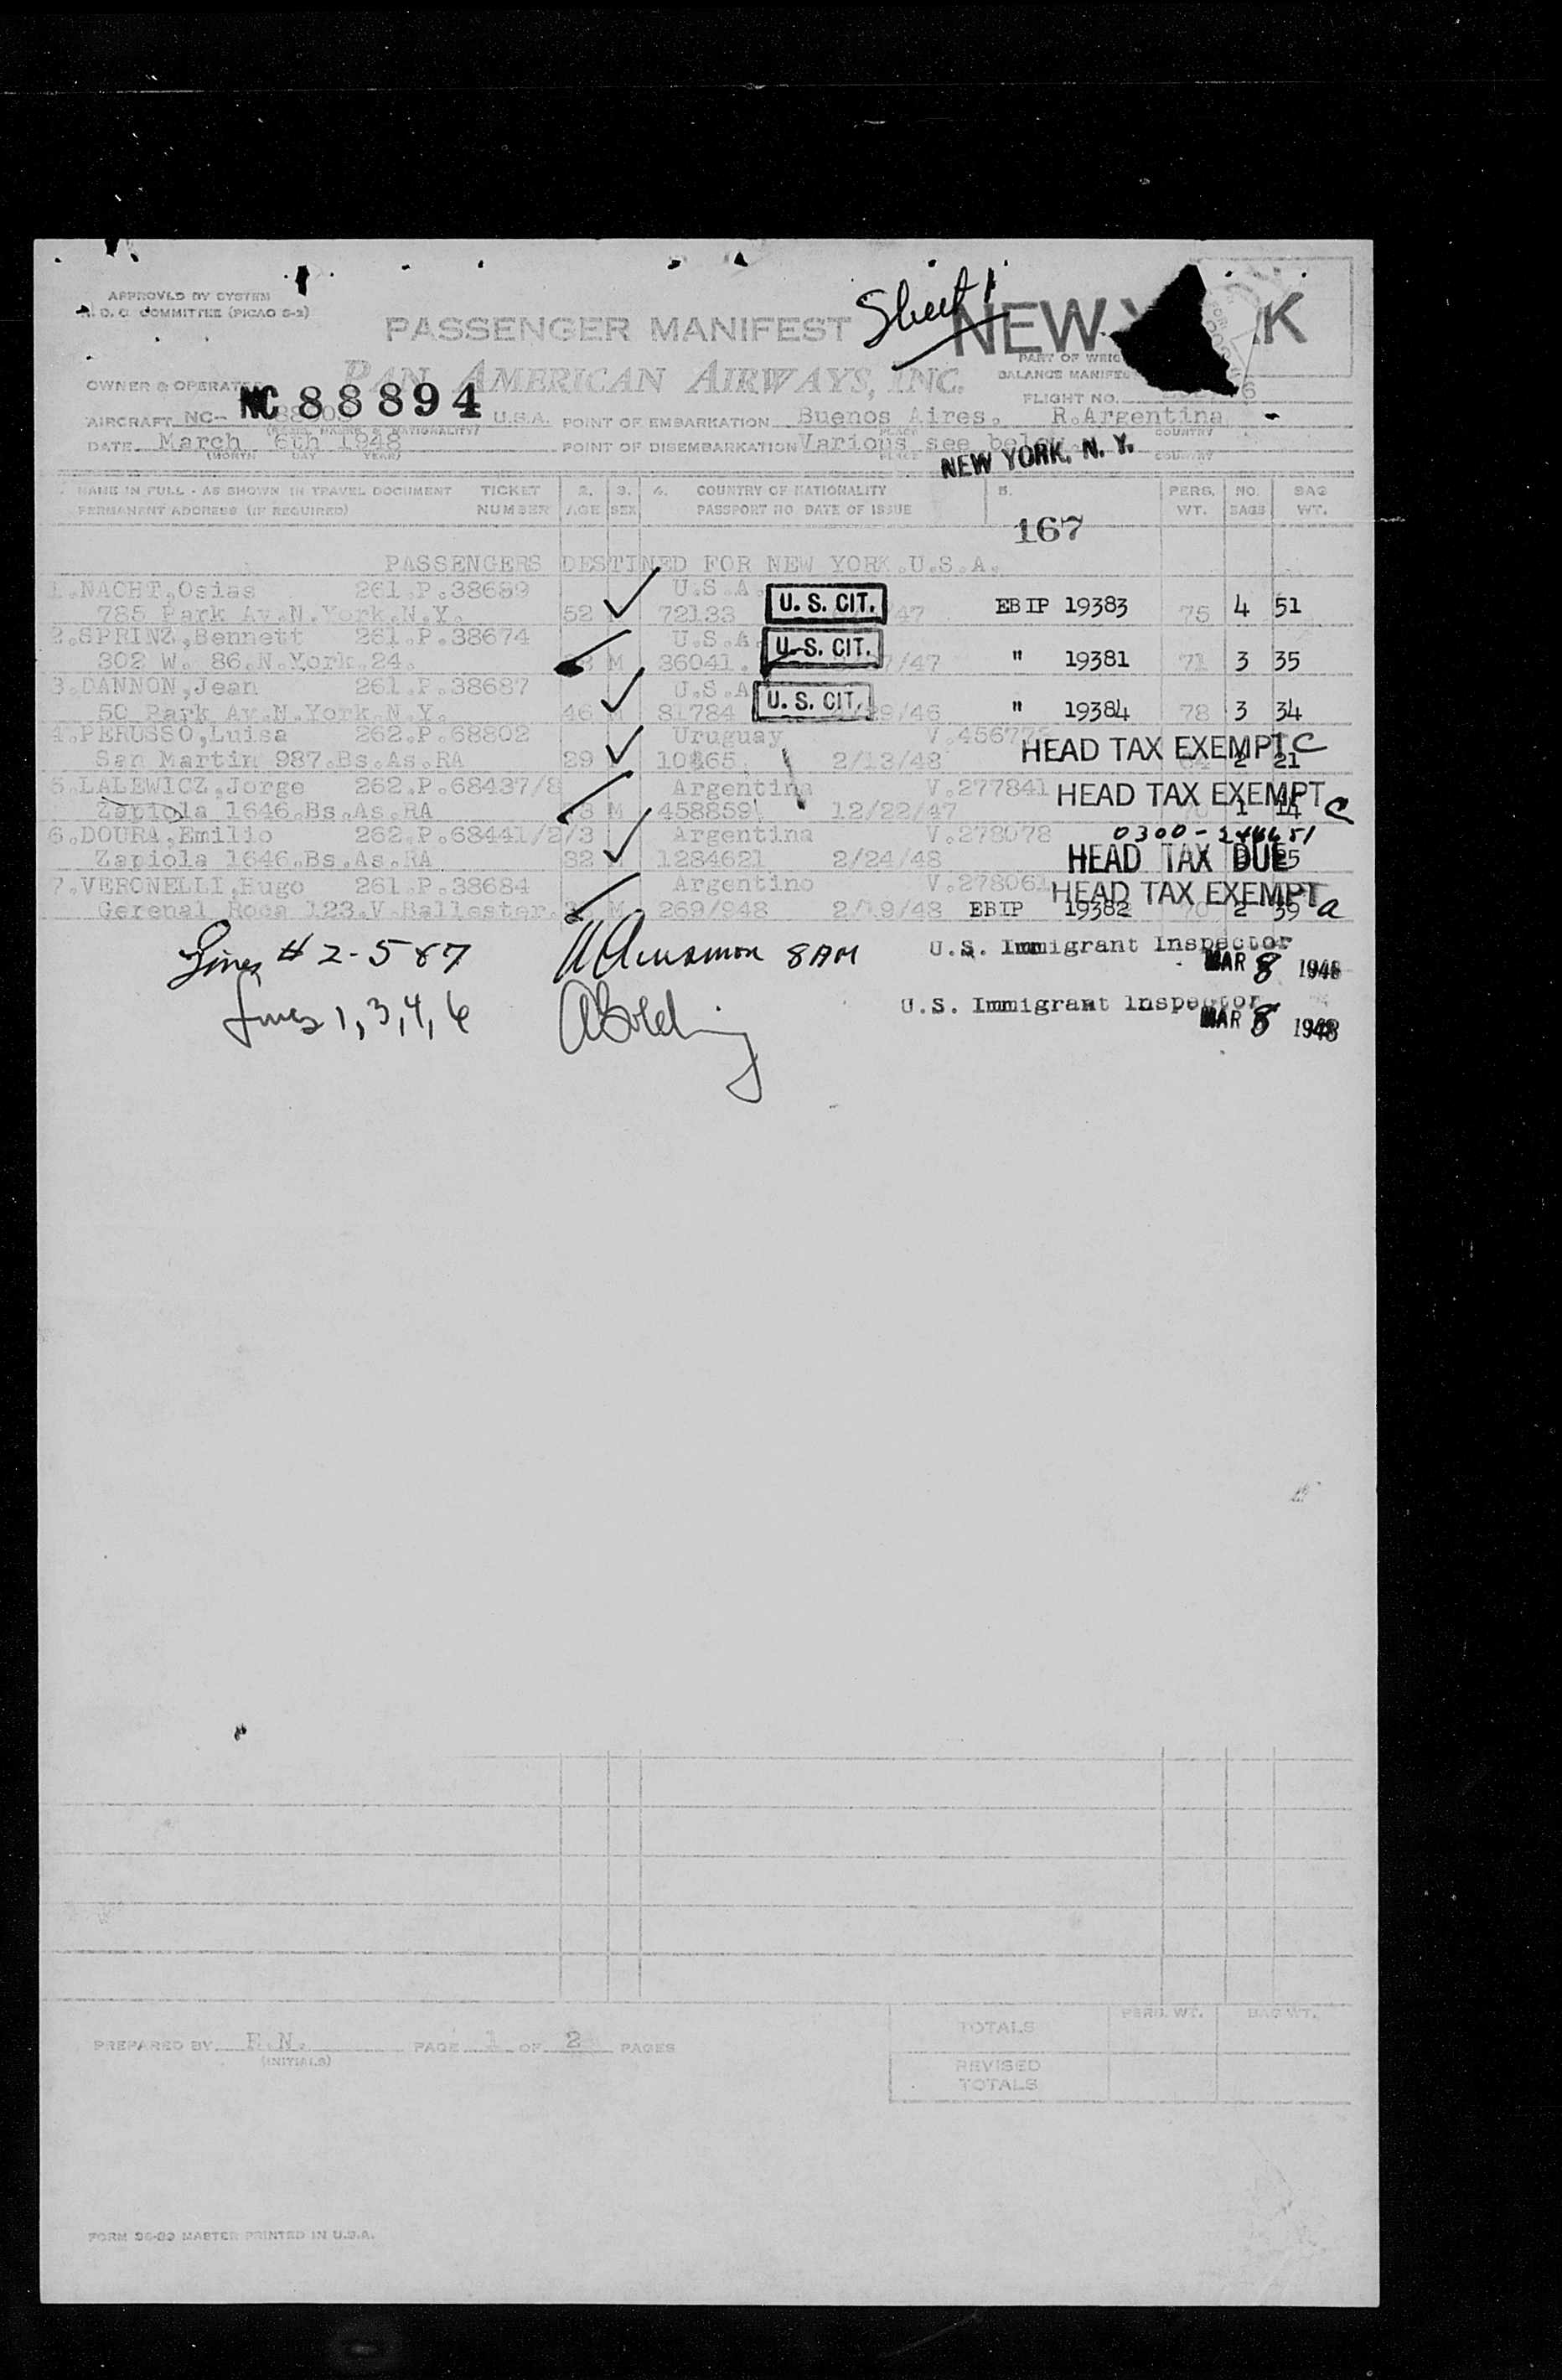 APPROVED BY SYSTEM
COMMITTEE (PICAO S-2)
PASSENGER MANIFEST
Sheet 1
NEW
K
PAN AMERICAN AIRWAYS, INC.
PART OF WEIG
BALANCE MANIFES
OWNER & OPERATOR
FLIGHT NO.
AIRCRAFT NC-- NC 88894 U.S.A. POINT OF EMBARKATION Buenos Aires. R.Argentina
DATE March 6th 1948 POINT OF DISEMBARKATION Various see below
(MONTH DAY YEAR) PLACE COUNTRY
NEW YORK, N. Y.
NAME IN FULL - AS SHOWN IN TRAVEL DOCUMENT TICKET 2. 3. 4. COUNTRY OF NATIONALITY 5. PERS. NO. BAG
PERMANENT ADDRESS (IF REQUIRED) NUMBER AGE SEX PASSPORT NO DATE OF ISSUE WT. BAGS WT.
167
PASSENGERS DESTINED FOR NEW YORK.U.S.A.
1.NACHT,Osias 261.P.38689 U.S.A. U. S. CIT.
785 Park Av.N.York.N.Y. 52 72133 /47 EBIP 19383 75 4 51
2.SPRINZ,Bennett 261.P.38674 U.S.A. U. S. CIT.
302 W. 86.N.York.24. M 36041. 7/47 " 19381 71 3 35
3.DANNON,Jean 261.P.38687 U.S.A U. S. CIT.
50 Park Av.N.York.N.Y. 46 M 81784 29/46 " 19384 78 3 34
4.PERUSSO,Luisa 262.P.68802 Uruguay V.45677 HEAD TAX EXEMPT C
San Martin 987.Bs.As.RA 29 2/13/48 2 21
5.LALEWICZ,Jorge 262.P.68437/8 Argentina V.277841 HEAD TAX EXEMPT C
Zapiola 1646.Bs.As.RA M 458859 12/22/47 1 14
6.DOURA,Emilio 262.P.68441/2/3 Argentina V.278078 0300-
Zapiola 1646.Bs.As.RA 32 M 1284621 2/24/48 HEAD TAX DUE
7.VERONELLI,Hugo 261.P.38684 Argentino V.278061 HEAD TAX EXEMPT
Gerenal Roca 123.V.Ballester. M 269/948 2/19/48 EBIP 19382 70 2 39 a
Lines # 2-5 & 7 8 AM U.S. Immigrant Inspector
MAR 8 1948
Lines 1, 3, 4, 6 U.S. Immigrant Inspector
MAR 8 1948
TOTALS PERS. WT. BAG WT.
PREPARED BY PAGE 1 OF 2 PAGES
(INITIALS)
REVISED
TOTALS
FORM MASTER PRINTED IN U.S.A.